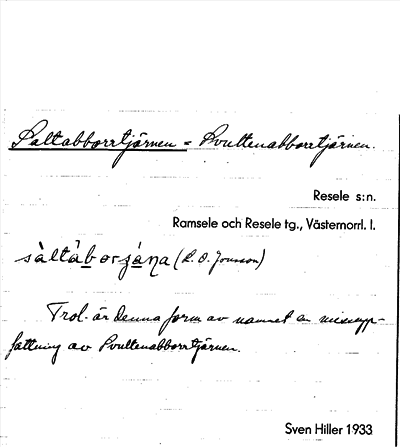 Saltabborrtjärnen = Svultenabborrtjärnen.
Resele s:n.
Ramsele och Resele tg., Västernorrl. l.
sàltàborɟáṇa (L. O. Jonsson)
Trol. är denna form av namnet en missupp-
fattning av Svultenabborrtjärnen.
Sven Hiller 1933